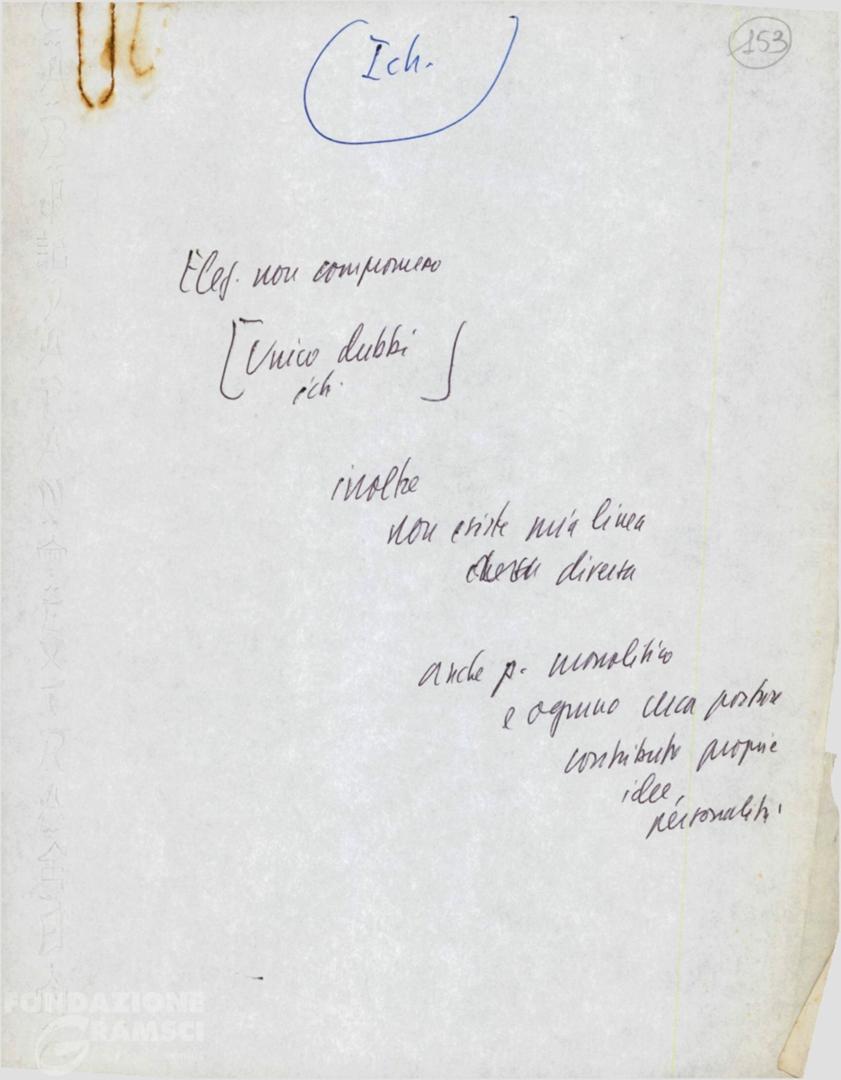 Ich.
153
Elez. non compromesso
[Unico dubbi
ich.]
inoltre
non esiste mia linea
diversa
anche p. monolitico
e ognuno cerca portare
contributo proprie
idee,
personalità
FONDAZIONE
GRAMSCI